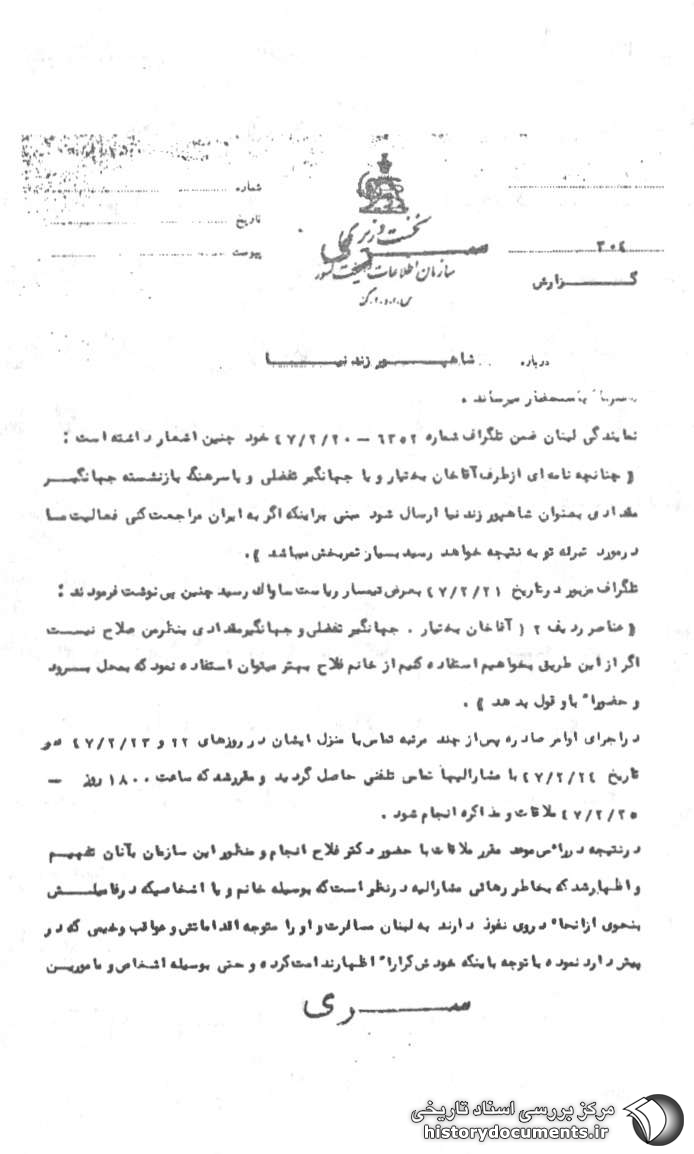 شماره
تاریخ
پیوست
نخست وزیری
سری
سازمان اطلاعات و امنیت کشور
س.ا.و.ا.ک
۳۰۴
گـــزارش
درباره شاهپـــور زند نیـــا
باستحضار میرساند .
نمایندگی لبنان ضمن تلگراف شماره ۶۳۵۲ – ۴۷/۲/۲۰ خود چنین اشعار داشته است :
« چنانچه نامه ای ازطرف آقاخان بختیار و یا جهانگیر تفضلی و یاسرهنگ بازنشسته جهانگیـــر
مقدادی بعنوان شاهپور زند نیا ارسال شود مبنی براینکه اگر به ایران مراجعت کنی فعالیت مـا
درمورد تبرئه تو به نتیجه خواهد رسید بسیار ثمربخش میباشد » .
تلگراف مزبور درتاریخ ۴۷/۲/۲۱ بعرض تیمسار ریاست ساواك رسید چنین پی نوشت فرمودند :
« عناصر ردیف ۲ ( آقاخان بختیار . جهانگیر تفضلی و جهانگیرمقدادی بنظرمن صلاح نیست
اگر از این طریق بخواهیم استفاده کنیم از خانم فلاح بهتر میتوان استفاده نمود که بمحل بـرود
و حضورا" باو قول بدهد » .
دراجرای اوامر صادره پس از چند مرتبه تماس با منزل ایشان در روزهای ۲۲ و ۴۷/۲/۲۳ در
تاریخ ۴۷/۲/۲۴ با مشارالیها تماس تلفنی حاصل گردید و مقررشد که ساعت ۱۸۰۰ روز –
۴۷/۲/۲۵ ملاقات و مذاکره انجام شود .
درنتیجه در رأس موعد مقرر ملاقات با حضور دکتر فلاح انجام و منظور این سازمان بآنان تفهیـم
و اظهارشد که بخاطر رهائی مشارالیه درنظر است که بوسیله خانم و یا اشخاصیکه درفامیلـــش
بنحوی ازانحاء دروی نفوذ دارند به لبنان مسافرت و او را متوجه اقداماتش و عواقب وخیمی که در
پیش دارد نموده با توجه باینکه خودش کرارا" اظهارندامت کرده و حتی بوسیله اشخاص و مامورین
ســـری
مرکز بررسی اسناد تاریخی
historydocuments.ir